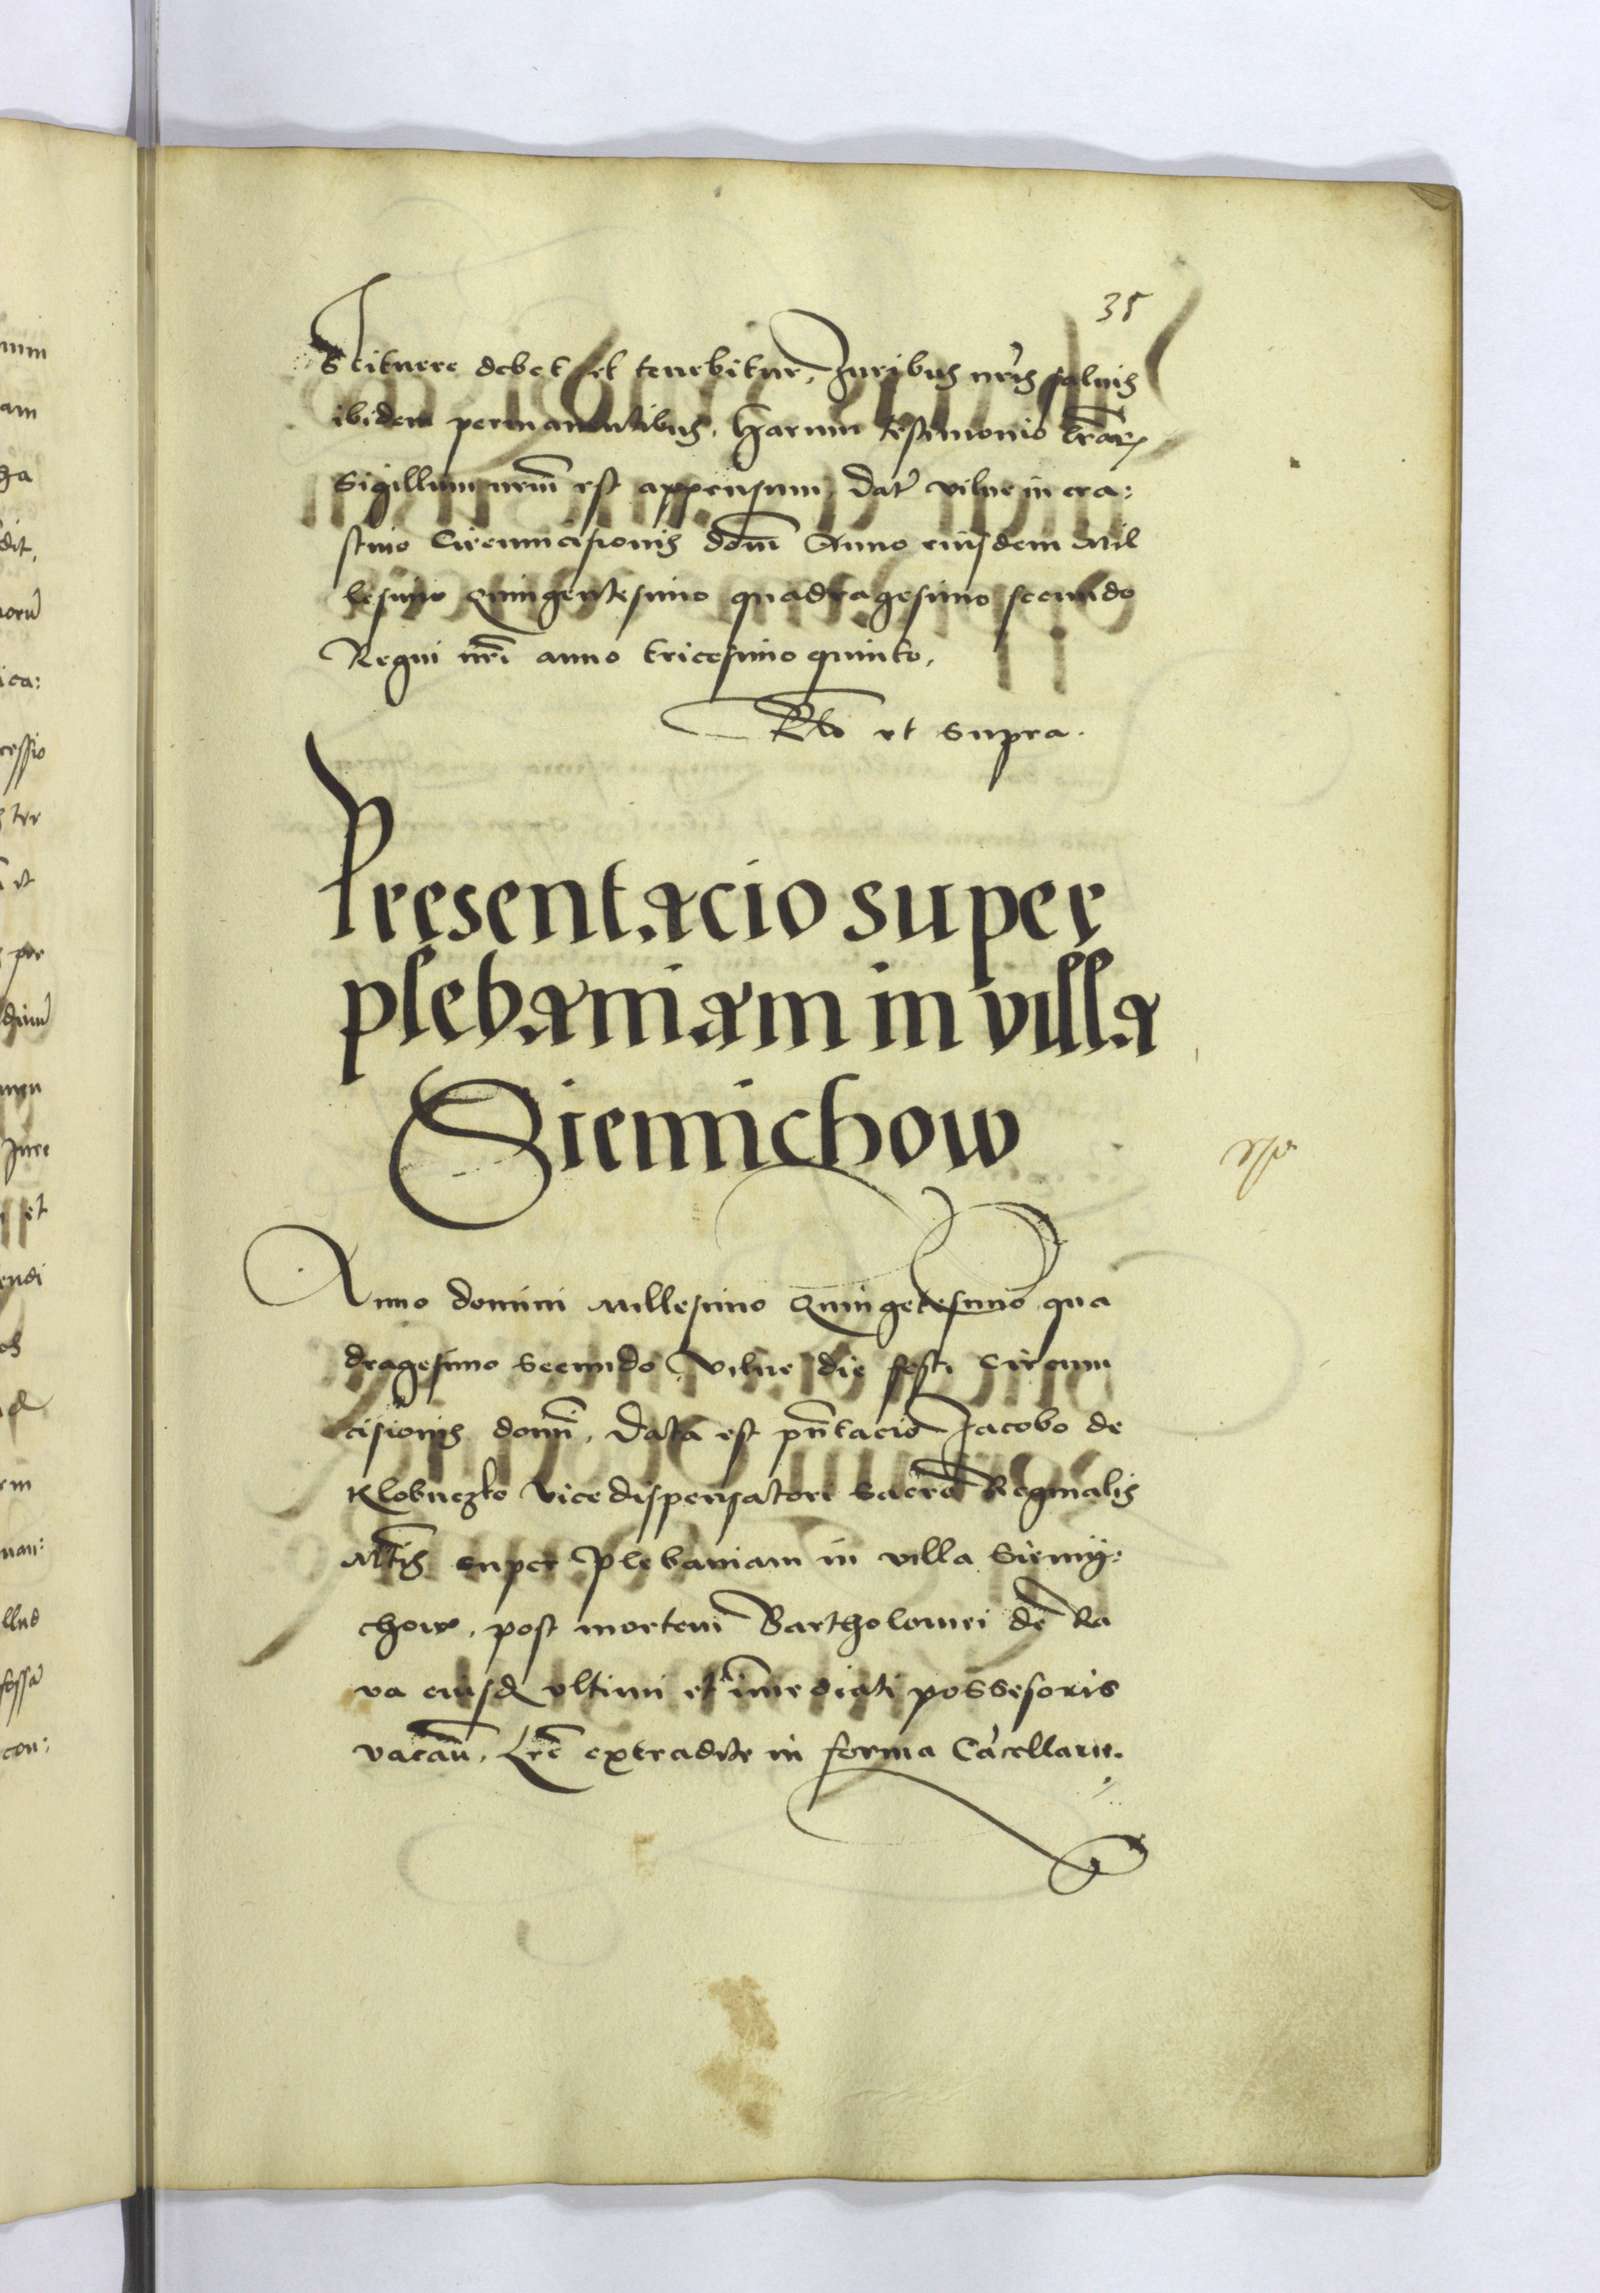 35
Stituere debet et tenebitur, Juribus nris̃ saluis
ibidem permanentibus. Harum testimonio lrãrꝫ
Sigillum nrm̃ est appensum, Dat̃ vilne in cra:
stino Circumcisionis domĩ Anno eiusdem Mil
lesimo Quingentesimo quadragesimo secundo
Regni nrĩ anno tricesimo quinto,
Rlo ut supra.
Presentacio super
plebaniam in villa
Siemichow
Anno domini Millesimo Quingẽtesimo qua
dragesimo Secundo, Vilne die festi Circum
cisionis domĩ, Data est pñtacio Jacobo de
Klobuczko Vicedispensatori Sacrã Reginalis
Mt̃is super Plebaniam in villa Siemy:
chow, post mortem Bartholomei de Ra
va eiusd̃ ultimi et im̃ediati possesoris
vacañ, Lrẽ extradite in forma Cãcellarie.